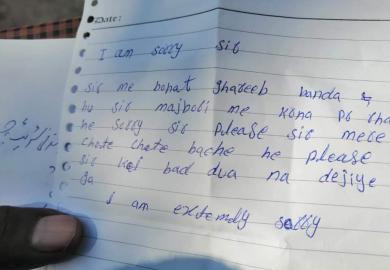 Date:
I am solly sir
sir me bohat ghareeb banda
hu sir majboli me kana pr
he solly sir please sir mere
chote chote bache he please
sir koi bad dua na dejiye
ga
i am extemdly solly